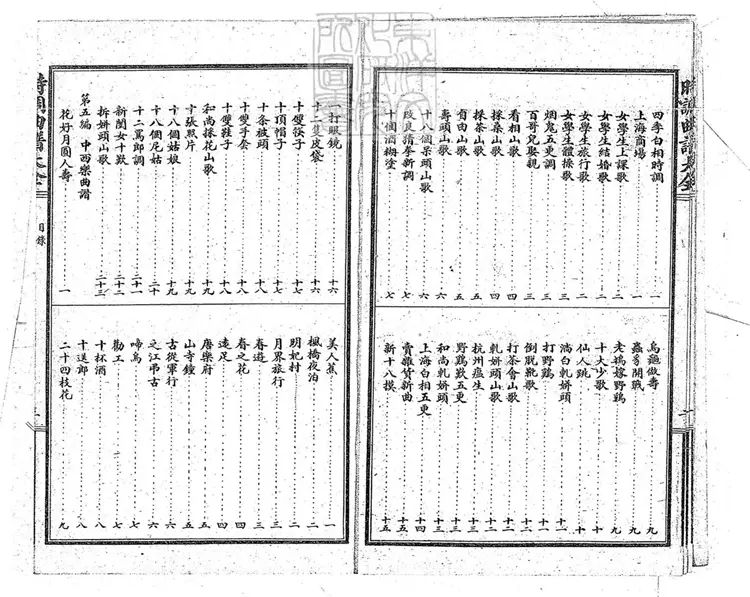 時調曲譜大全
四季白相時調 一
上海商場 一
女學生上課歌 二
女學生結婚歌 二
女學生旅行歌 二
女學生體操歌 二
烟鬼五更調 三
百哥兒娶親 三
看相山歌 四
採桑山歌 四
採茶山歌 五
賣由山歌 五
壽頭山歌 六
十八個呆頭山歌 六
改良猜拳新調 七
十個酒糊塗 七
烏龜做壽 九
蟲豸開戰 九
老鴇嫁野鷄 九
十大少歌 十
仙人跳 十
淌白軋姘頭 十一
打野鷄 十一
倒脫靴歌 十一
打茶會山歌 十二
軋姘頭山歌 十二
杭州瘟生 十二
野鷄歎五更 十三
和尚軋姘頭 十三
上海白相五更 十四
賣雜貨新曲 十五
新十八摸 十五
一打眼鏡 十六
十二隻皮袋 十六
十雙筷子 十七
十頂帽子 十七
十條被頭 十八
十雙手套 十八
十雙鞋子 十八
和尚採花山歌 十九
十張照片 十九
十八個姑娘 十九
十八個尼姑 二十
十二萬郎調 二十一
新閨女十歎 二十二
拆姘頭山歌 二十三
第五編 中西樂曲譜
花好月圓人壽 一
美人蕉 一
楓橋夜泊 二
明妃村 二
月界旅行 三
春遊 三
春之花 四
遠足 四
唐樂府 五
山寺鐘 五
古從軍行 六
之江弔古 六
啼鳥 七
勸工 七
十杯酒 八
十送郎 八
二十四枝花 九
時調曲譜大全
目錄
一